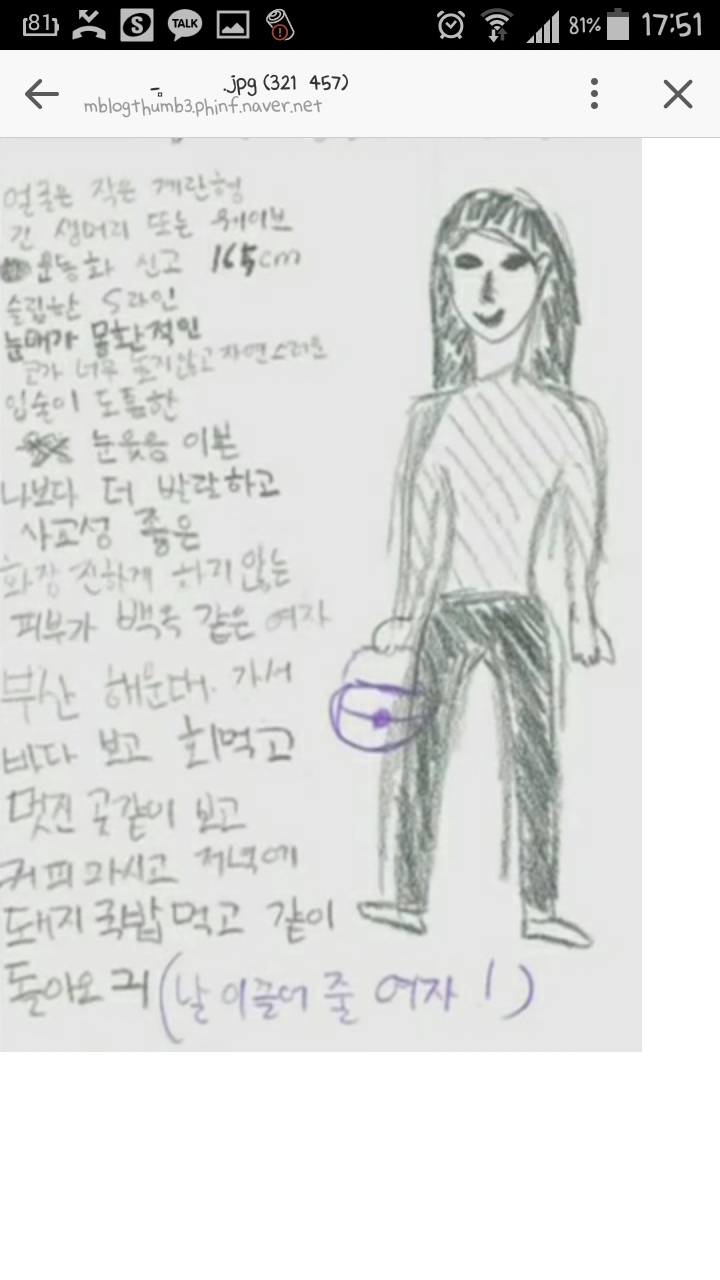 81 TALK 81% 17:51
.jpg (321 457)
mblogthumb3.phinf.naver.net
얼굴은 작은 계란형
긴 생머리 또는 웨이브
운동화 신고 165cm
슬립한 S라인
눈매가 몽환적인
코가 너무 높지않고 자연스러운
입술이 도톰한
눈웃음 이쁜
나보다 더 발랄하고
사교성 좋은
화장 진하게 하지 않는
피부가 백옥 같은 여자
부산 해운대 가서
바다 보고 회먹고
멋진 곳같이 보고
커피 마시고 저녁에
돼지 국밥 먹고 같이
돌아오귀 (날 이끌어 줄 여자!)